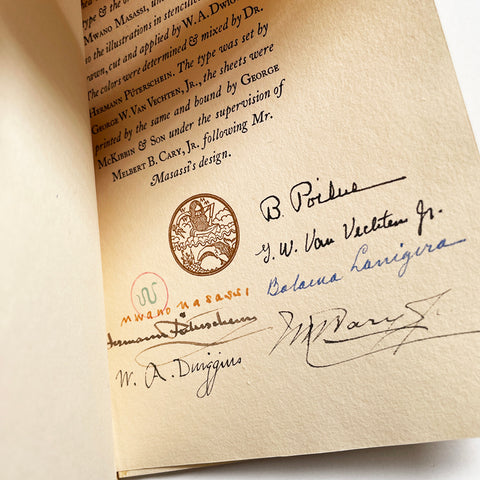 type & the
MWANO MASASSI, un
to the illustrations in stencil
drawn, cut and applied by W. A. DWIG
The colors were determined & mixed by DR.
HERMANN PÜTERSCHEIN. The type was set by
GEORGE W. VAN VECHTEN, JR., the sheets were
printed by the same and bound by GEORGE
MCKIBBIN & SON under the supervision of
MELBERT B. CARY, JR. following MR.
MASASSI's design.
B. Poidue
G. W. Van Vechten Jr.
Balaena Lanigera
mwano masassi
Hermann Püterschein
M B Cary Jr.
W. A. Dwiggins